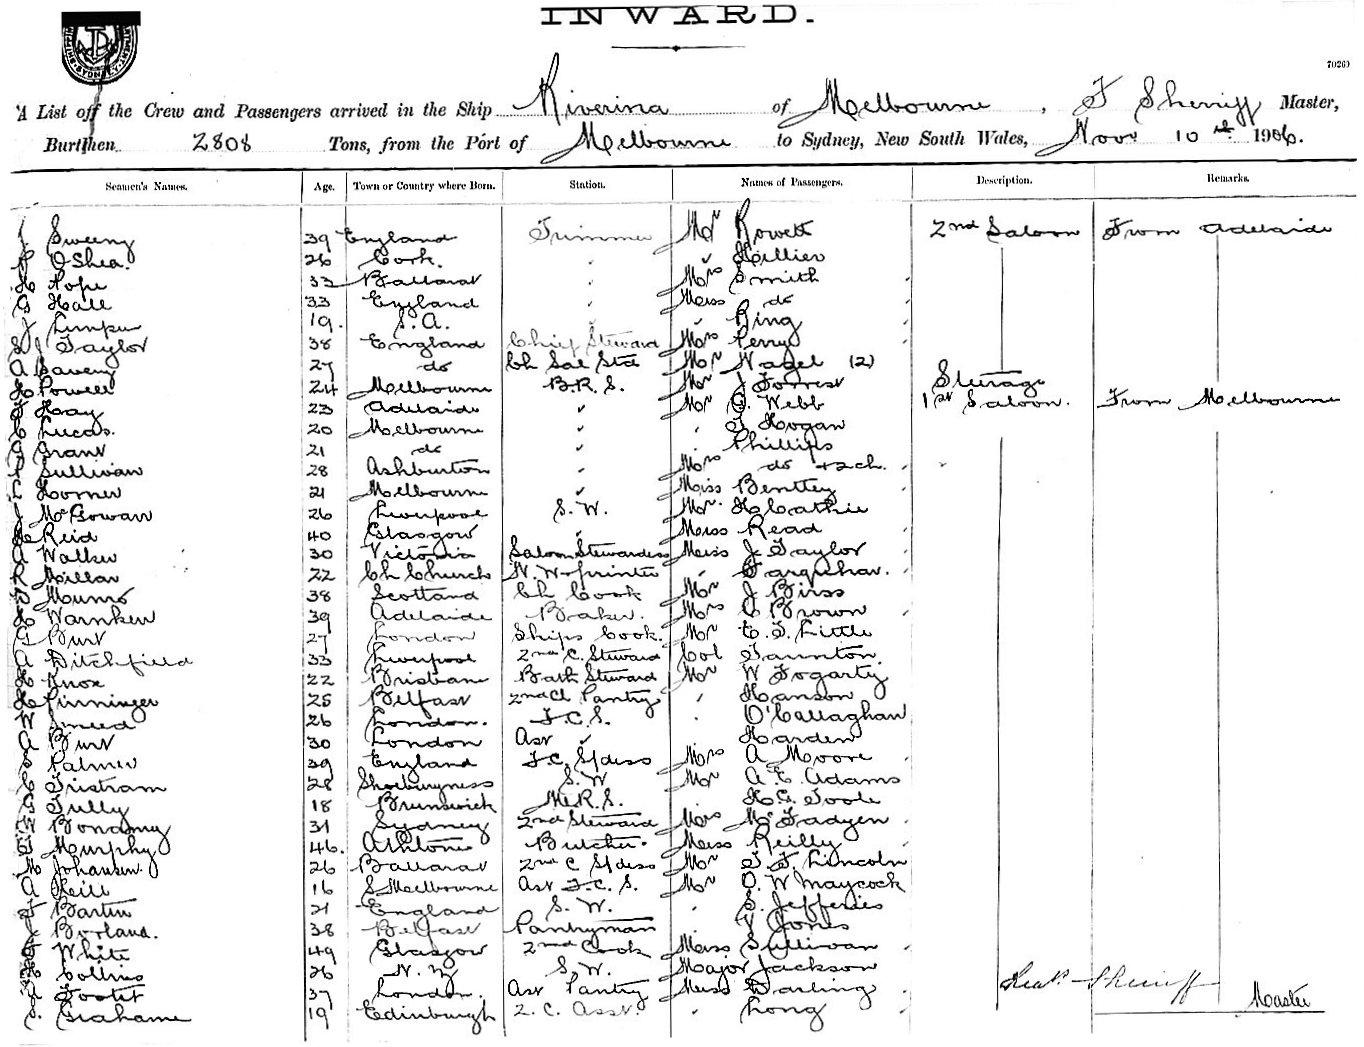 INWARD.
70260
A List of the Crew and Passengers arrived in the Ship Riverina of Melbourne, F Sherriff Master,
Burthen 2808 Tons, from the Port of Melbourne to Sydney, New South Wales, Novr 10th 1906.
Seamen's Names. Age. Town or Country where Born. Station. Names of Passengers. Description. Remarks.
Sweeny 39 England Trimmer Mr Rowett 2nd Saloon From Adelaide
O'Shea. 26 Cork. ✓ Hillier
H Pope 33 Ballarat Mrs Smith
G Hall 33 England Miss do
J 19. S.A. King
Taylor 38 England Chief Steward Mrs Perry
A 27 do Ch Sal Std Mr Nagel (2)
H Powell 24 Melbourne B.R.S. Mr J Forrest Steerage
23 Adelaide ✓ Mr G. Webb 1st Saloon. From Melbourne
C Lucas. 20 Melbourne ✓ T Hogan
G Grant 21 do ✓ Phillips
Sullivan 28 Ashburton ✓ Mrs do + 2 ch.
Horner 21 Melbourne ✓ Miss Benttey
J McGowan 26 Liverpool S.W. Mr H Cathie
Reid 40 Glasgow Miss Read
A Walker 30 Victoria Saloon Stewardess Miss J Taylor
R Millar 22 Ch Church N. W. printer Farquhar.
Munro 38 Scotland Ch Cook Mr J Birss
H Warnken 39 Adelaide Baker. Mrs C Brown
G Burt 27 London Ships Cook. Mr C. T. Little
A Ditchfield 33 Liverpool 2nd C. Steward Col Taunton.
H Knox 22 Brisbane Bath Steward Mr W Fogarty
H Pinninger 25 Belfast 2nd Cl Pantry Hanson
W Smeed 26 London. F.C.S. O'Callaghan
A Burt 30 London Asst ✓ Harden
Palmer 39 England F.C. S/dess Mrs A Moore
Tristram 28 Shoeburyness S.W Mr A. E. Adams
Tully 18 Brunswick M.R.S. H. G. Toole
Bonamy 31 Sydney 2nd Steward Mrs McFadyen
Murphy 46. Athlone Butcher. Miss Reilly
Johansen. 26 Ballarat 2nd C S/dess Mr T. F. Lincoln
A Neill 16 S Melbourne Asst F.C.S. Mr O. W Maycock
Bartin 21 England S.W. S. Jefferies
J Borland. 38 Belfast Pantryman V Jones
White 49 Glasgow 2nd Cook Miss Sullivan
Collins 26 N. Z S.W. Major Jackson
Foster 37 London. Asst Pantry Miss Darling
Grahame 19 Edinburgh 2. C. Asst. Long
Sherriff
Master